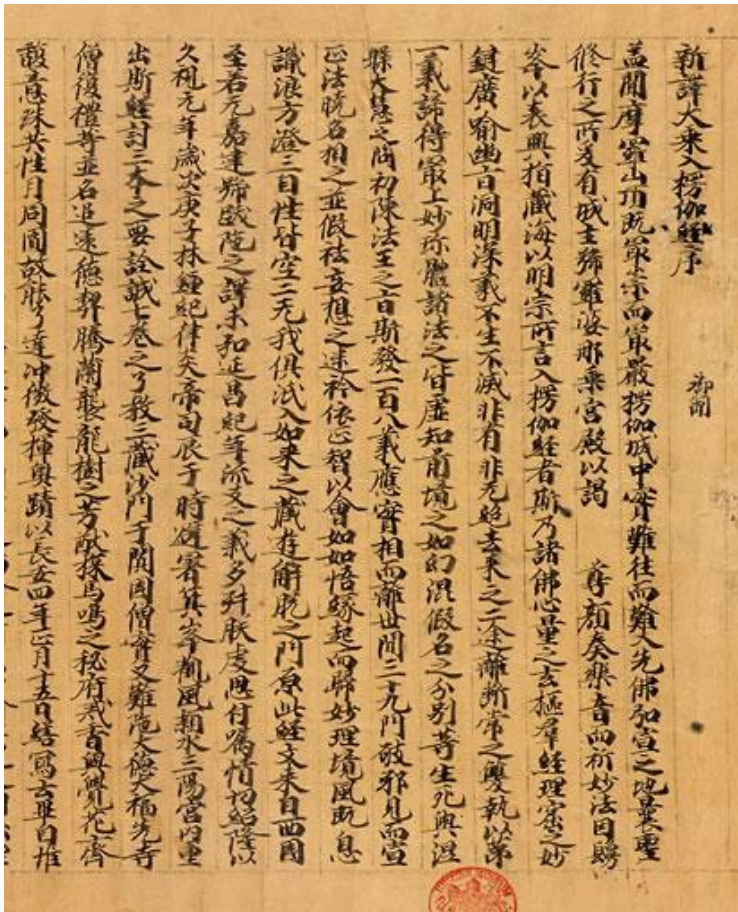 新譯大乘入楞伽經序
御製
盖聞摩羅山頂既最崇而最嚴楞伽城中實難往而難入先佛弘宣之地曩聖
修行之所爰有城主號羅婆那乘宮殿以謁尊顏奏樂音而祈妙法因鬘
峯以表興指藏海以明宗所言入楞伽經者斯乃諸佛心量之玄樞群經理窟之妙
鍵廣喻幽言洞明深義不生不滅非有非无絕去來之二途離斷常之雙執以第
一義諦得最上妙珎體諸法之皆虛知前境之如幻混假名之分別等生死與涅
縣大慧之問初陳法王之言斯發一百八義應實相而離世間三十九門破邪見而宣
正法曉名相之並假袪妄想之迷衿依正智以會如如悟緣起而歸妙理境風既息
識浪方澄三自性皆空二无我俱泯入如來之藏遊解脫之門原此經文來自西國
至若元嘉建號跋陀之譯未和延昌紀年流支之義多舛朕虔思付囑情切紹隆以
久視元年歲次庚子林鍾紀律炎帝司辰于時避暑箕峯觀風潁水三陽宮內重
出斯經討三本之要詮成七卷之了教三藏沙門于闐國僧實叉難陀大德大福先寺
僧復禮等並名追遠德契騰蘭襲龍樹之芳猷探馬鳴之秘府戒香與覺花齊
馥意珠共性月同圓故能了達沖微發揮奧蹟以長安四年正月十五日繕寫云畢自惟